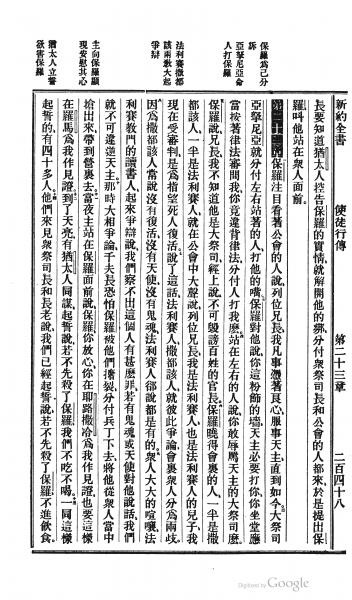 新約全書　使徒行傳　第二十三章　二百四十八
保羅爲己分
訴
亞拏尼亞命
人打保羅
法利賽撒都
該兩敎大起
爭辯
主向保羅顯
現安慰其心
猶太人立誓
欲害保羅
長要知道猶太人控告保羅的實情就解開他的綁分付衆祭司長和公會的人都來於是提出保
羅叫他站在衆人面前
第二十三章保羅注目看著公會的人說列位兄長我凡事憑著良心服事天主直到如今大祭司
亞拏尼亞就分付左右站著的人打他的嘴保羅對他說你這粉飾的墻天主必要打你你坐堂應
當按著律法審問我你竟違背律法分付人打我麽站在左右的人說你敢辱駡天主的大祭司麽
保羅說兄長我不知道他是大祭司經上說不可毀謗百姓的官長保羅曉得會裏的人一半是撒
都該人一半是法利賽人就在公會中大聲說列位兄長我是法利賽人也是法利賽人的兒子我
現在受審判是爲指望死人復活說了這話法利賽人撒都該人就彼此爭論會裏衆人分爲兩歧
因爲撒都該人當說沒有復活沒有天使沒有鬼魂法利賽人卻說都是有的衆人大大的喧嚷法
利賽敎門的讀書人起來爭辯說我們察不出這個人有甚麽罪若有鬼魂或天使對他說話我們
就不可違逆天主那時大相爭論千夫長恐怕保羅被他們撦裂分付兵丁下去將他從衆人當中
搶出來帶到營裏去當夜主站在保羅面前說保羅你放心你在耶路撒冷爲我作見證也要這樣
在羅馬爲我作見證到了天亮有猶太人同謀起誓說若不先殺了保羅我們不吃不喝一同這樣
起誓的有四十多人他們來見衆祭司長和長老說我們已經起誓說若不先殺了保羅不進飮食
Digitized by Google